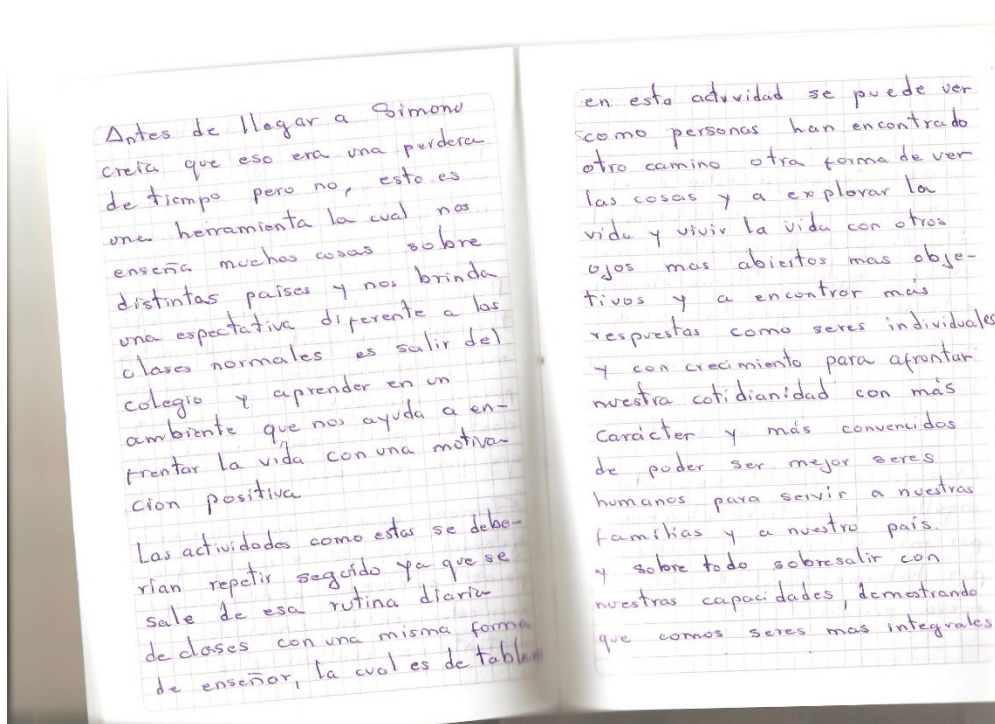 Antes de llegar a Simonu
creia que eso era una perdera
de tiempo pero no, esto es
una herramienta la cual nos
enseña muchas cosas sobre
distintas paises y nos brinda
una espectativa diferente a las
clases normales es salir del
colegio y aprender en un
ambiente que nos ayuda a en-
frentar la vida con una motiva-
cion positiva
Las actividades como estas se debe-
rían repetir seguido ya que se
sale de esa rutina diaria
de clases con una misma forma
de enseñar, la cual es de
en esta actividad se puede ver
como personas han encontrado
otro camino otra forma de ver
las cosas y a explorar la
vida y vivir la vida con otros
ojos mas abiertos mas obje-
tivos y a encontrar más
respuestas como seres individuales
y con crecimiento para afrontar
nuestra cotidianidad con más
carácter y más convencidos
de poder ser mejor seres
humanos para servir a nuestras
familias y a nuestro país.
y sobre todo sobresalir con
nuestras capacidades, demostrando
que comos seres mas integrales